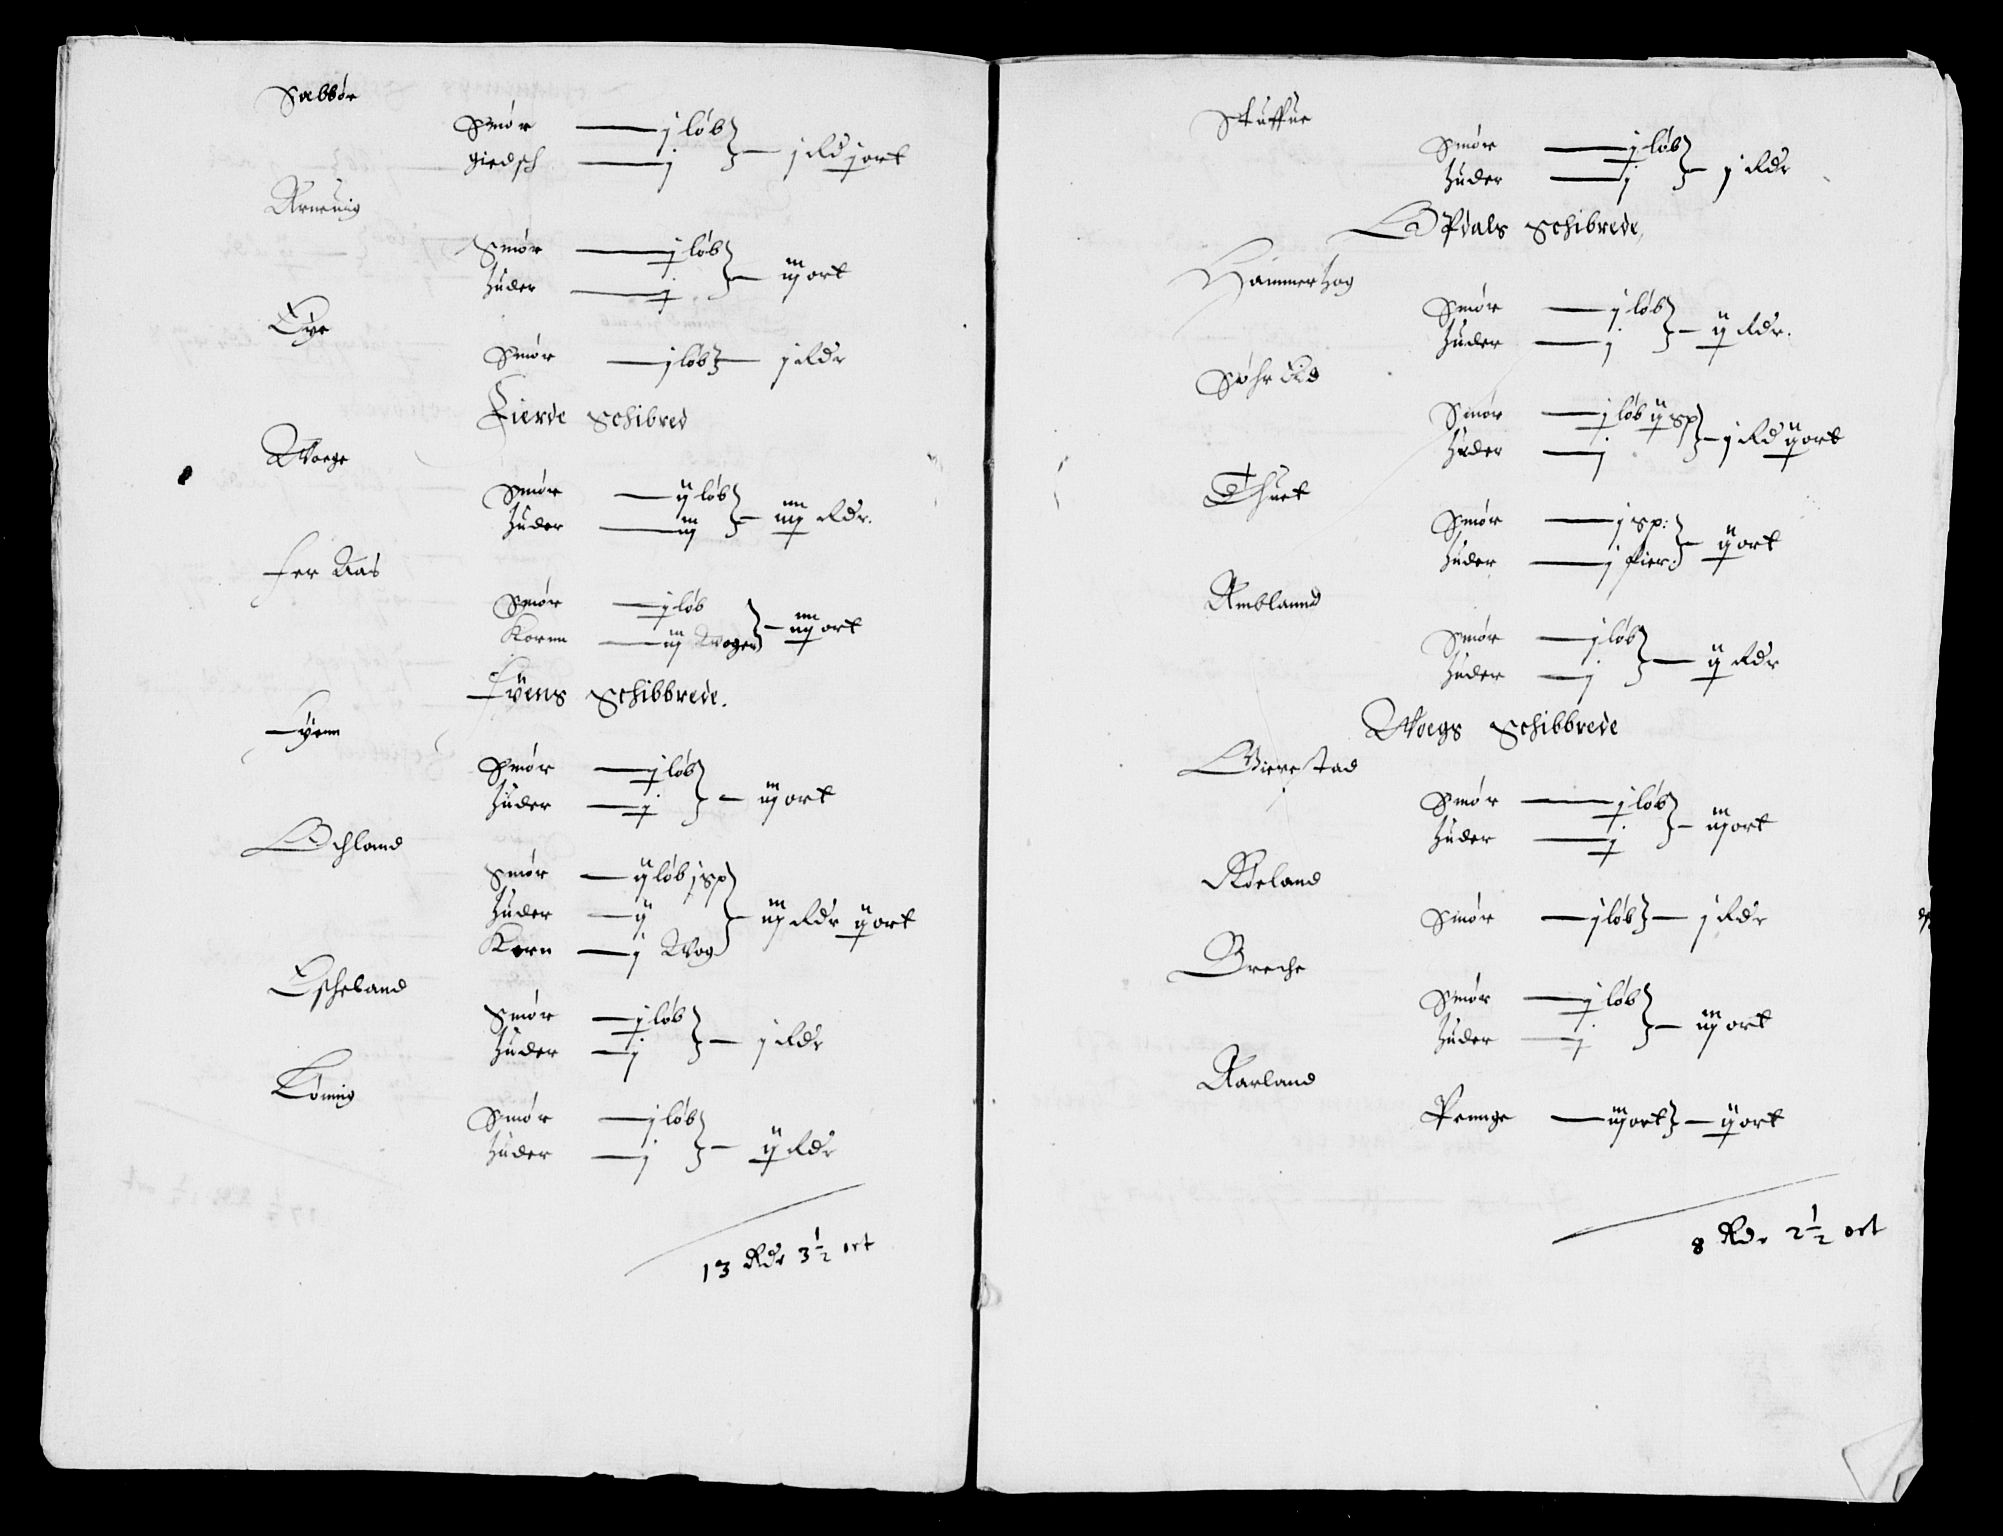 Sæbbør
Smør — j løb
giedsk — j } — j Rd j ort
Arneuig
Smør — j løb
huder — j } — iij ort
Øye
Smør — j løb } — j Rdr
Fierde Schibred
Woege
Smør — ij løb
huder — iij } — iiij Rdr.
Aas
Smør — j løb
Kornn — iij Woger } — iiij ort
Schibbrede.
Smør — j løb
huder — j } — iij ort
Ochland
Smør — ij løb j sp
huder — ij
Korn — j Wog } — iij Rdr ij ort
Escheland
Smør — j løb
huder — j } — j Rdr
Lønnig
Smør — j løb
huder — j } — ij Rdr
13 Rdr 3½ ort
Stuffue
Smør — j løb
huder — j } — j Rdr
Opdals Schibrede,
Hammerhog
Smør — j løb
huder — j } — ij Rdr.
Søhr Eid
Smør — j løb ij sp
huder — j } — j Rd ij ort
Thuet
Smør — j sp:
huder — j fier: } — ij ort
Amblannd
Smør — j løb
huder — j } — ij Rdr
Woegs Schibbrede
Gierestad
Smør — j løb
huder — j } — iij ort
Røeland
Smør — j løb } — j Rdr
Breche
Smør — j løb
huder — j } — iij ort
Aarland
Pennge — iij ort } — ij ort
8 Rdr 2½ ort